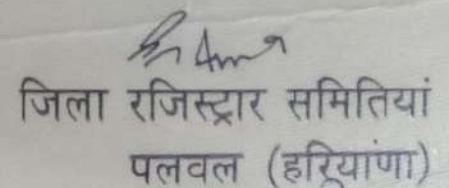 जिला रजिस्ट्रार समितियां
पलवल (हरियाणा)